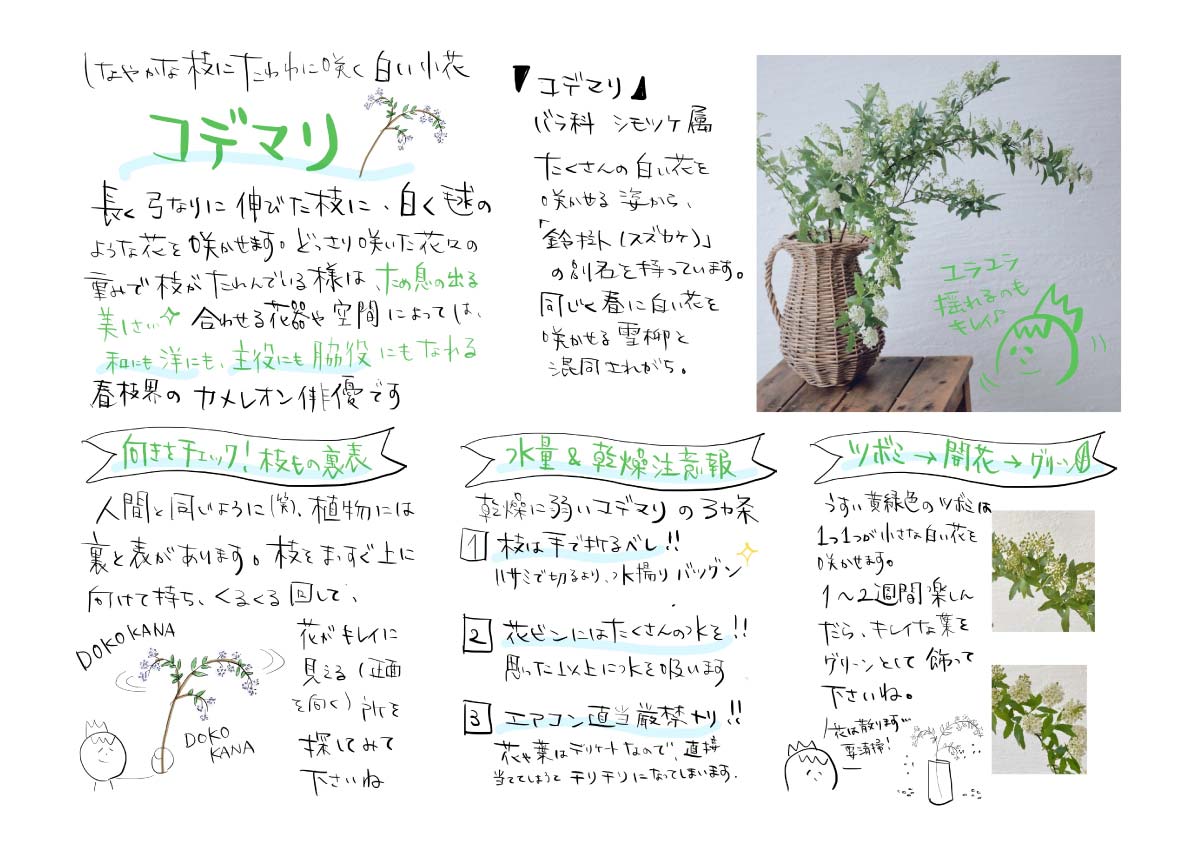 しなやかな枝にたわわに咲く白い小花
コデマリ
長く弓なりに伸びた枝に、白く毬の
ような花を咲かせます。どっさり咲いた花々の
重みで枝がたわんでいる様は、ため息の出る
美しさ
合わせる花器や空間によっては、
和にも洋にも、主役にも脇役にもなれる
春枝界のカメレオン俳優です
『コデマリ』
バラ科 シモツケ属
たくさんの白い花を
咲かせる姿から、
「鈴掛(スズカケ)」
の別名を持っています。
同じく春に白い花を
咲かせる雪柳と
混同されがち。
ユラユラ
揺れるのも
キレイ♪
向きをチェック!枝もの裏表
人間と同じように(笑)、植物には
裏と表があります。枝をまっすぐ上に
向けて持ち、くるくる回して、
花がキレイに
見える(正面
を向く)所を
探してみて
下さいね
DOKOKANA
DOKO
KANA
水量&乾燥注意報
乾燥に弱いコデマリの3ヵ条
1 枝は手で折るべし!!
ハサミで切るより、水揚りバツグン
2 花ビンにはたくさんの水を!!
思った以上に水を吸います
3 エアコン直当厳禁ナリ!!
花や葉はデリケートなので、直接
当ててしまうとチリチリになってしまいます.
ツボミ→開花→グリーン
うすい黄緑色のツボミは
1つ1つが小さな白い花を
咲かせます。
1〜2週間楽しん
だら、キレイな葉を
グリーンとして飾って
下さいね。
花は散ります
要清掃!